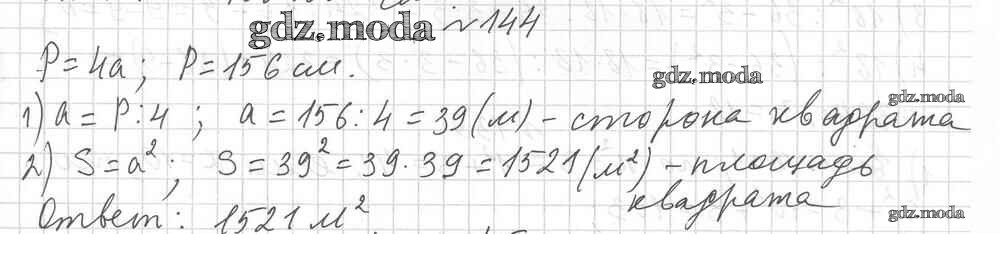 №144
gdz.moda
P=4a; P=156 см.
gdz.moda
gdz.moda
1) a = P:4 ; a = 156:4 = 39 (м) – сторона квадрата
2) S = a²; S = 39² = 39·39 = 1521 (м²) – площадь
квадрата
gdz.moda
Ответ: 1521 м².